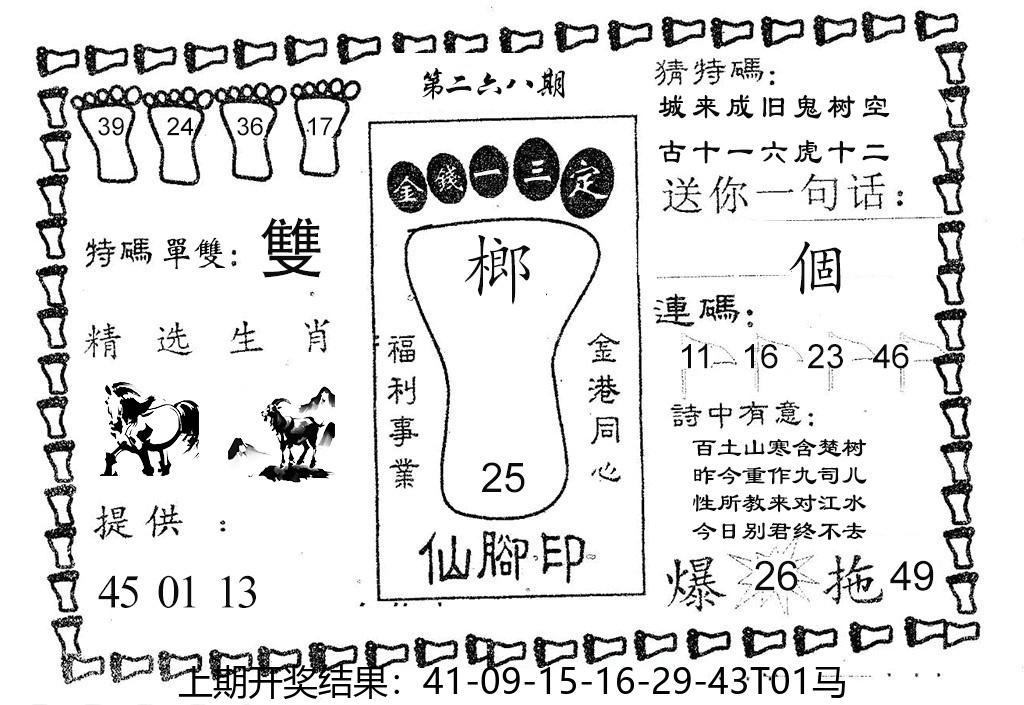 第二六八期
39 24 36 17
特碼單雙：雙
精选生肖
提供：
45 01 13
金錢一三定
榔
25
福利事業
金港同心
仙腳印
猜特碼：
城来成旧鬼树空
古十一六虎十二
送你一句话：
個
連碼：
11 16 23 46
詩中有意：
百土山寒含楚树
昨今重作九司儿
性所教来对江水
今日别君终不去
爆 26 拖 49
上期开奖结果：41-09-15-16-29-43T01马